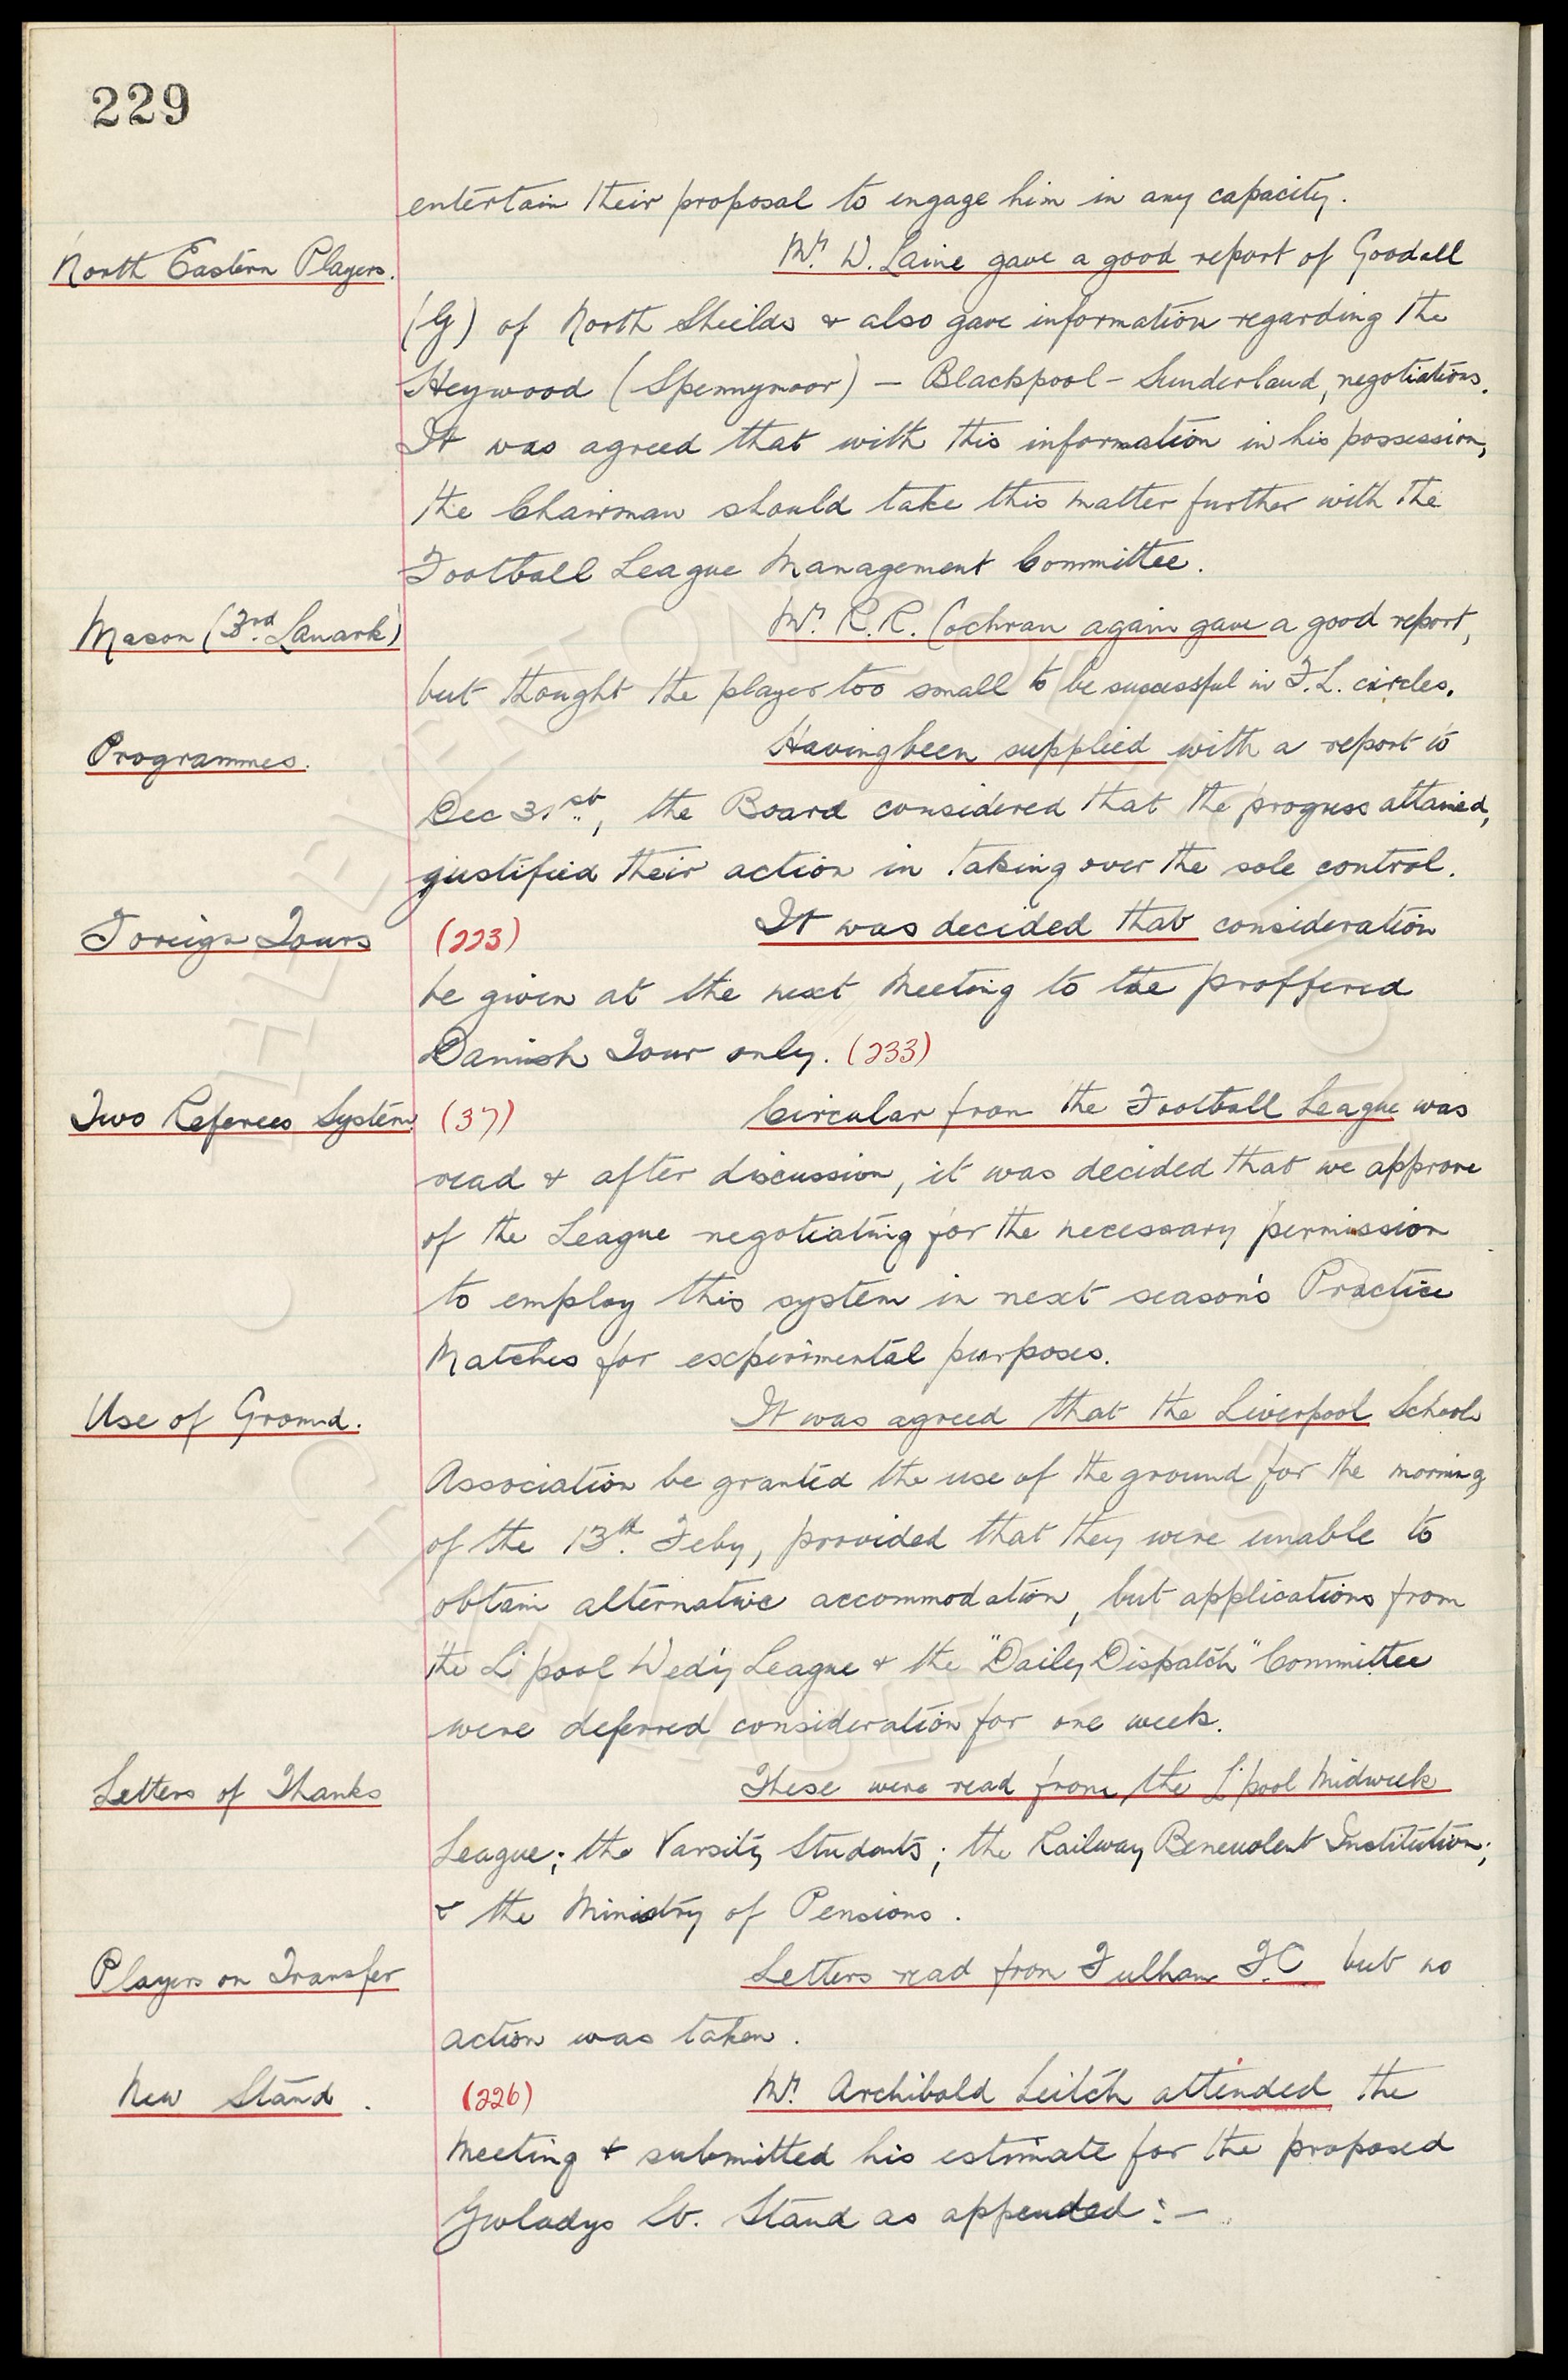 229
entertain their proposal to engage him in any capacity.
North Eastern Players. Mr. W. Laine gave a good report of Goodall
(G) of North Shields & also gave information regarding the
Heywood (Spennymoor) – Blackpool – Sunderland, negotiations.
It was agreed that with this information in his possession,
the Chairman should take this matter further with the
Football League Management Committee.
Mason (3rd. Lanark) Mr. R.R. Cochran again gave a good report,
but thought the player too small to be successful in F.L. circles.
Programmes. Having been supplied with a report to
Dec 31st, the Board considered that the progress attained,
justified their action in taking over the sole control.
Foreign Tours (223) It was decided that consideration
be given at the next Meeting to the proffered
Danish Tour only. (233)
Two Referees System (37) Circular from the Football League was
read & after discussion, it was decided that we approve
of the League negotiating for the necessary permission
to employ this system in next season's Practice
Matches for experimental purposes.
Use of Ground. It was agreed that the Liverpool Schools
Association be granted the use of the ground for the morning
of the 13th. Feby, provided that they were unable to
obtain alternative accommodation, but applications from
the L'pool Wed'y League & the "Daily Dispatch" Committee
were deferred consideration for one week.
Letters of Thanks These were read from the L'pool Midweek
League; the Varsity Students; the Railway Benevolent Institution;
& the Ministry of Pensions.
Players on Transfer Letters read from Fulham F.C but no
action was taken.
New Stand. (226) Mr. Archibald Leitch attended the
Meeting & submitted his estimate for the proposed
Gwladys St. Stand as appended:–